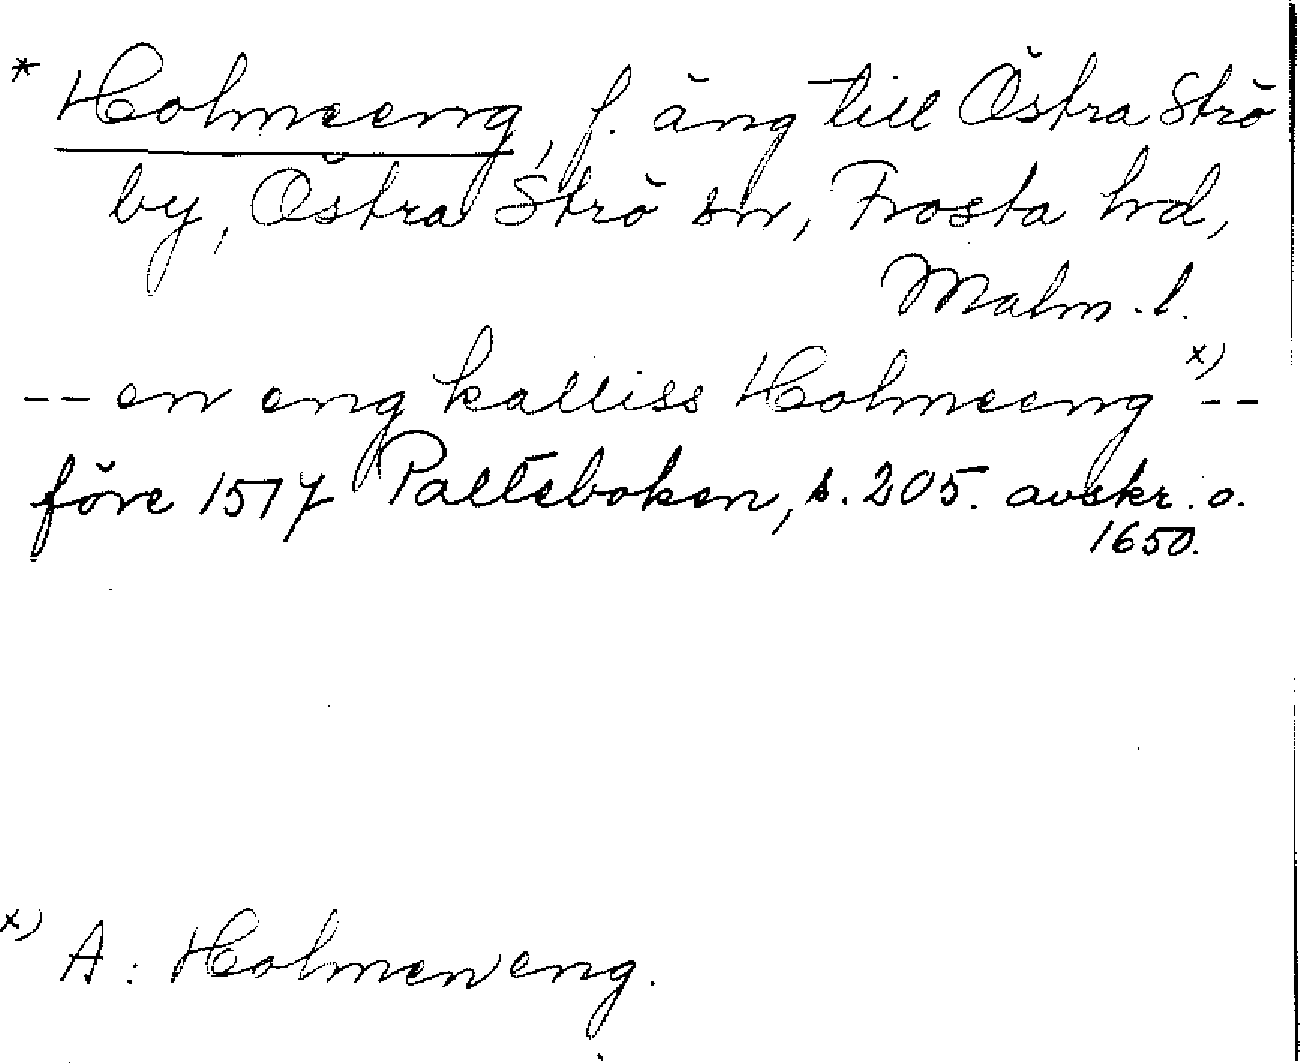 * Holmeeng, f. äng till Östra Strö
by, Östra Strö sn, Frosta hd,
Malm. l.
-- en eng kalliss Holmeeng x) --
före 1517 Palteboken, s. 205. avskr. o.
1650.
x) A: Holmen eng.